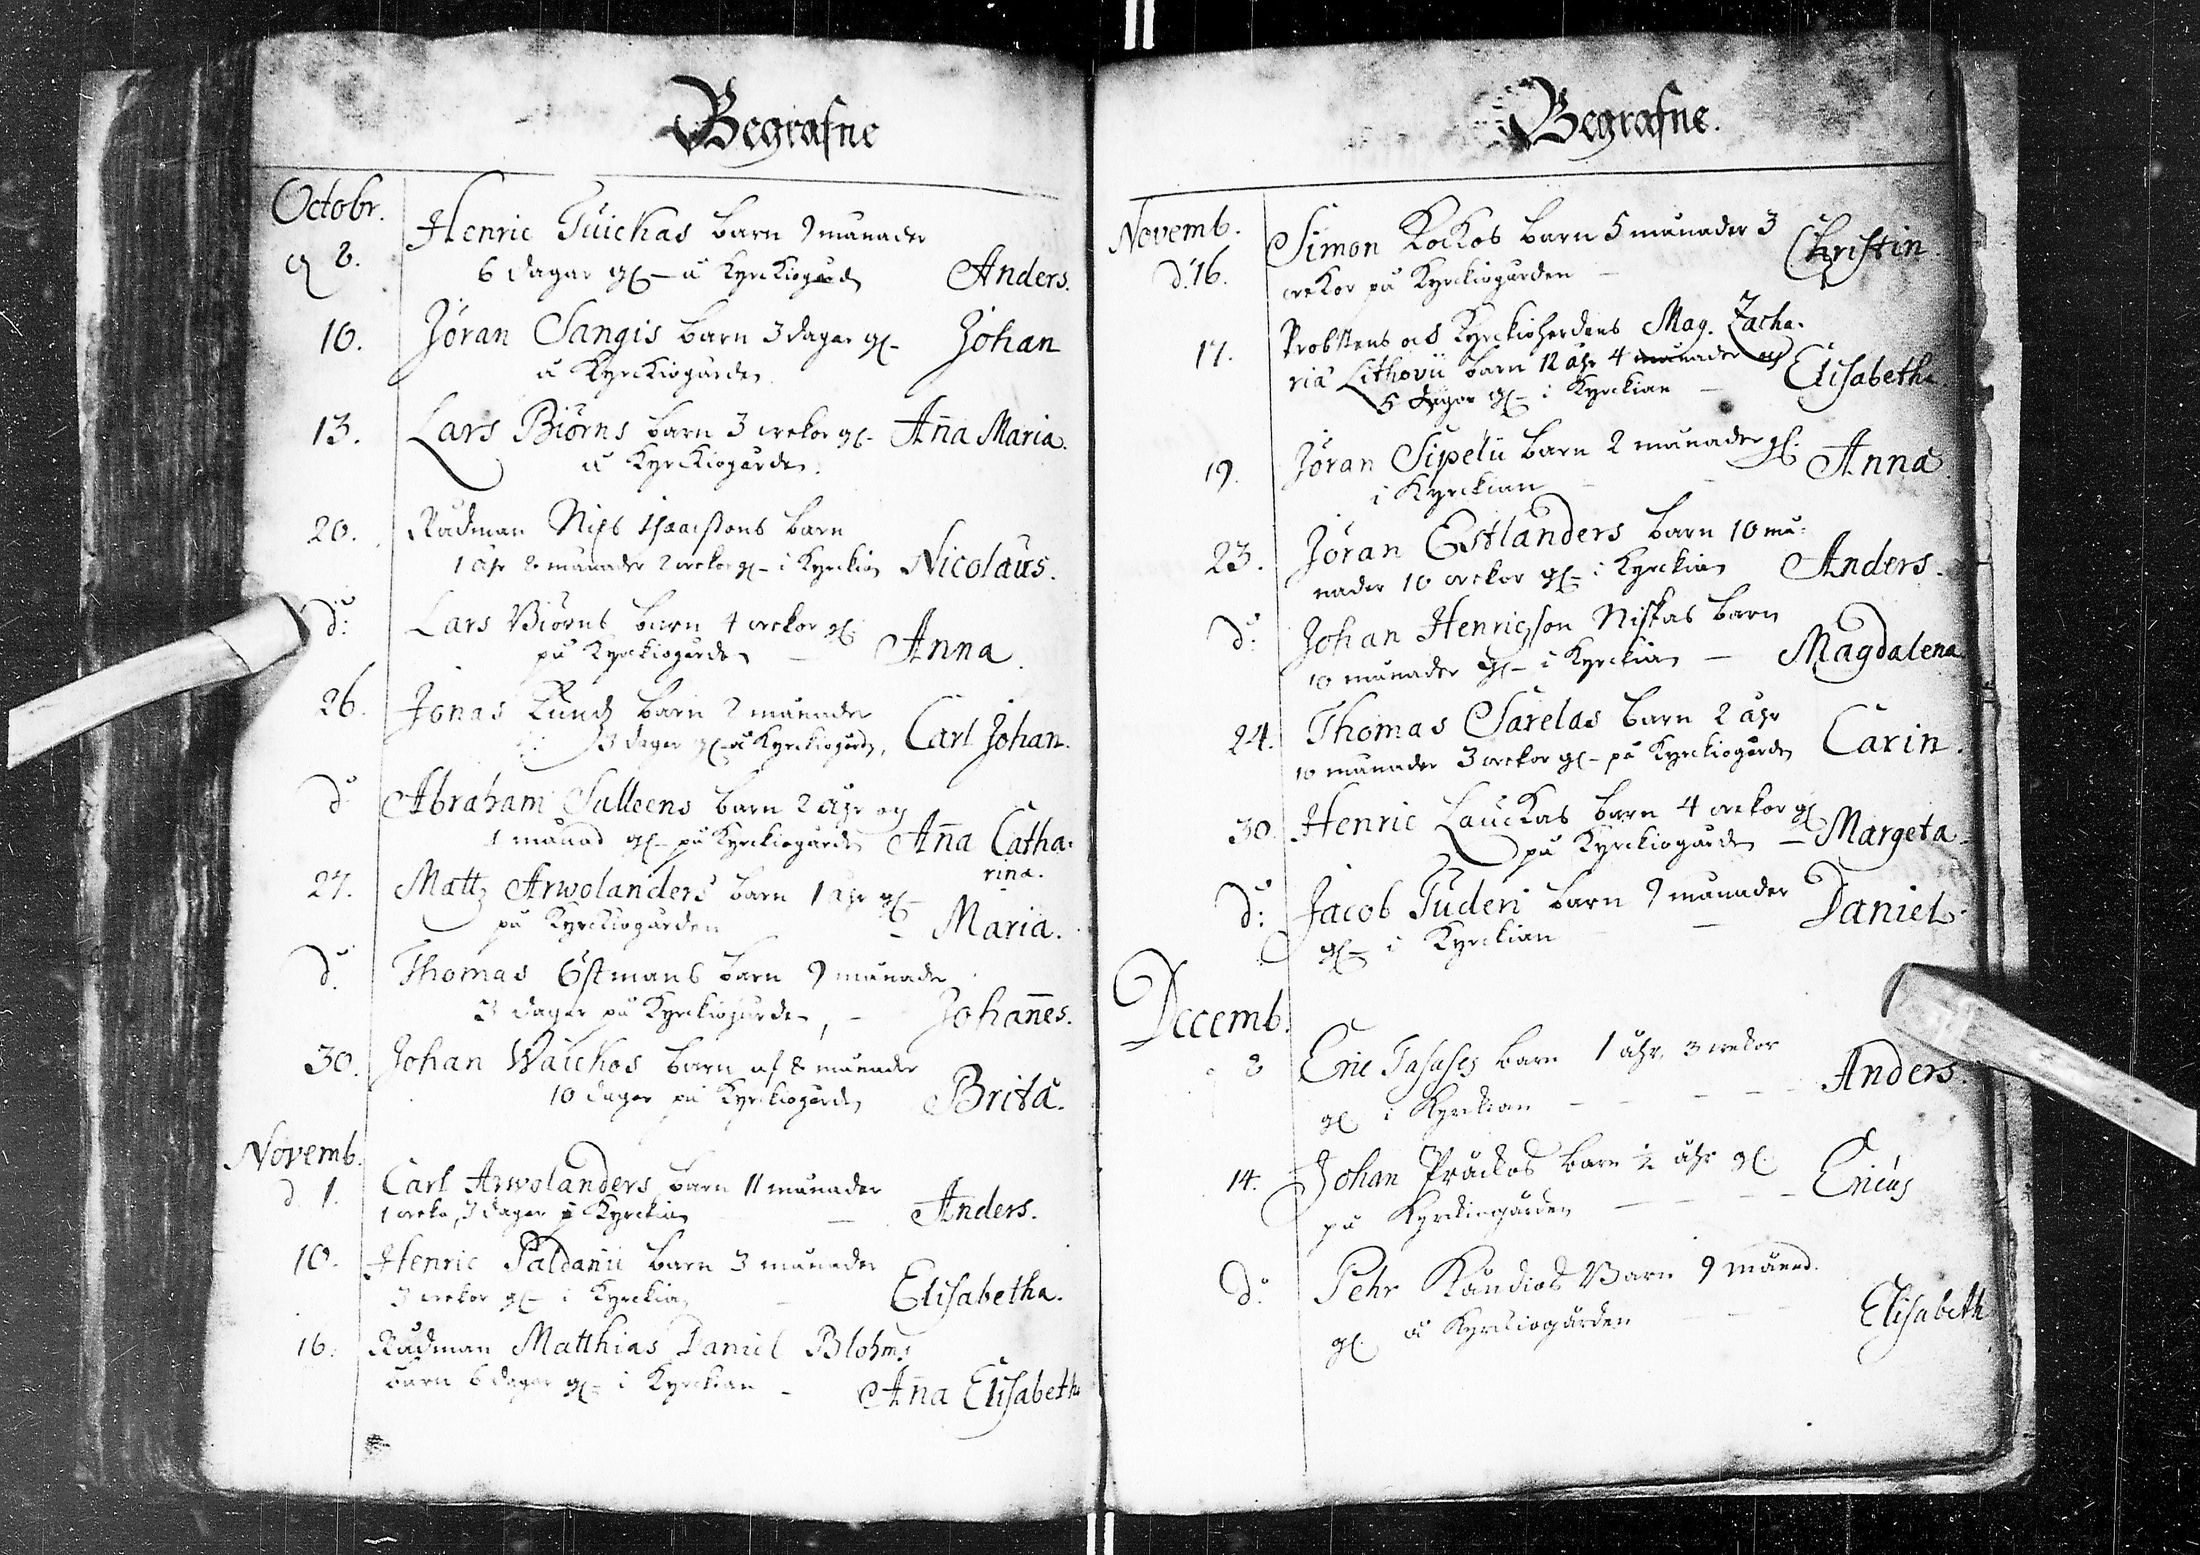 Begrafne
Octobr.
d 8. Henric Tuickas barn 9 månader
6 dagar gl– å Kyrckiogård Anders.
10. Jöran Sangis barn 3 dagar gl– Johan
å Kyrckiogården
13. Lars Biörns barn 3 wekor gl– Aña Maria.
å Kyrckiogården.
20. Rådman Nils Isaacssons barn
1 åhr 2 månader 2 wekor gl– i Kyrckian Nicolaus.
dº: Lars Biörns barn 4 wekor gl
på Kyrckiogården – Anna.
26. Jonas Lunds barn 2 månader
3 dagar gl– å Kyrckiogård, Carl Johan.
dº Abraham Salleens barn 2 åhr och
1 månad gl– på Kyrckiogården Aña Catha-
rina.
27. Matts Arwolanders barn 1 åhr gl–
på Kyrckiogården – Maria.
dº. Thomas Östmans barn 9 månader
3 dagar på Kyrckiogården, – Johañes.
30. Johan Waickos barn af 8 månader
10 dagar på Kyrckiogården Brita.
Novemb.
d. 1. Carl Arwolanders barn 11 månader
1 weka, 3 dagar Kyrckian – Anders.
10. Henric Paldanii barn 3 månader
3 wekor gl– i Kyrckian – Elisabetha.
16. Rådman Matthias Daniel Blohms
barn 6 dagar gl– i Kyrckian – Aña Elisabetha
Begrafne.
Novemb.
d. 16. Simon Kockos barn 5 månader 3 Christin.
wekor på Kyrckiogården –
17. Probstens och Kyrckioherdens Mag. Zacha-
riæ Lithovii barn 12 åhr 4 månader och Elisabetha.
5 dagar gl– i Kyrckian –
19. Jöran Sipelii barn 2 månader gl. Anna
i Kyrckian –
23. Jöran Estlanders barn 10 må-
nader 10 wekor gl– i Kyrckian Anders.
dº: Johan Henricson Niskas barn
10 månader gl– i Kyrckian – Magdalena
24. Thomas Sarelas barn 2 åhr Carin.
10 månader 3 wekor gl– på Kyrckiogården
30. Henric Lauckas barn 4 wekor gl
på Kyrckiogården – Margeta.
dº: Jacob Tuderi barn 9 månader Daniel.
gl– i Kyrckian – –
Decemb.
3 Eric barn 1 åhr, 3 wekor Anders.
gl i Kyrckian – – – –
14. Johan Präckos barn ½ åhr gl. Ericus
på Kyrckiogården – – –
dº. Pehr Kandios Barn 9 månad.
gl. å Kyrckiogården – – Elisabeth